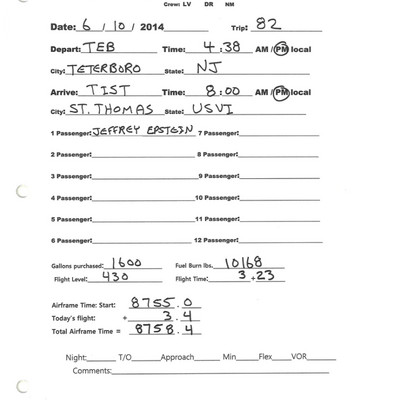 Crew: LV DR NM
Date: 6 / 10 / 2014 Trip: 82
Depart: TEB Time: 4:38 AM / PM local
City: TETERBORO State: NJ
Arrive: TIST Time: 8:00 AM / PM local
City: ST. THOMAS State: USVI
1 Passenger: JEFFREY EPSTEIN 7 Passenger:
2 Passenger: 8 Passenger:
3 Passenger: 9 Passenger:
4 Passenger: 10 Passenger:
5 Passenger: 11 Passenger:
6 Passenger: 12 Passenger:
Gallons purchased: 1600 Fuel Burn lbs. 10168
Flight Level: 430 Flight Time: 3 + 23
Airframe Time: Start: 8755.0
Today's flight: + 3.4
Total Airframe Time = 8758.4
Night: T/O Approach Min Flex VOR
Comments: